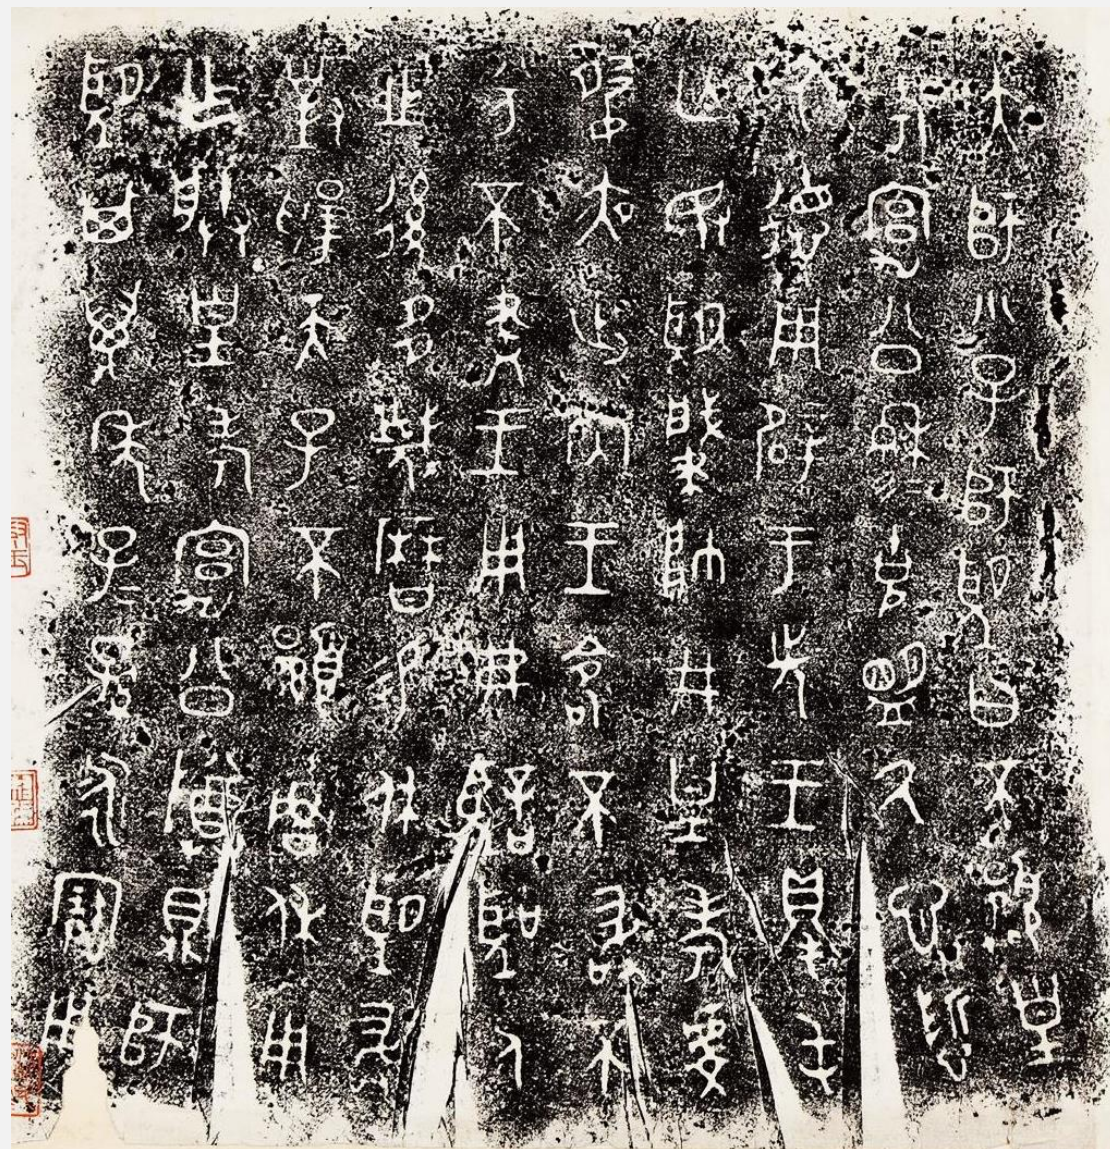 大師小子師望曰不顯皇
考宄公穆穆克盟氒心悊
氒德用辟于先王得屯
亡敃望肇帥井皇考虔
夙夜出內王命不敢不
分不妻王用弗忘聖人
之後多蔑曆易休望敢
對揚天子不顯魯休用
乍朕皇考宄公尊鼎師
望其萬年子子孫孫永寶用